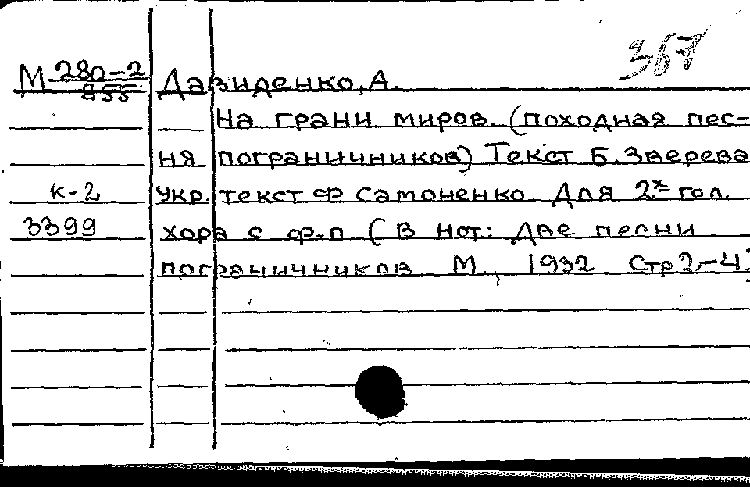 367
М 280-2 Давиденко, А.
955
На грани миров. (походная пес-
ня пограничников) Текст Б. Зверева
к-2 укр. текст Ф Самоненко Для 2х гол.
3399 хора с ф-п (В нот: Две песни
пограничников М., 1932 Стр 2-4)